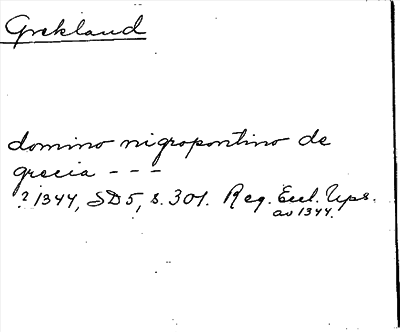 Grekland
domino nigropontino de
grecia - - -
? 1344, SD5, s. 301. Reg. Eccl. Ups.
av 1344.